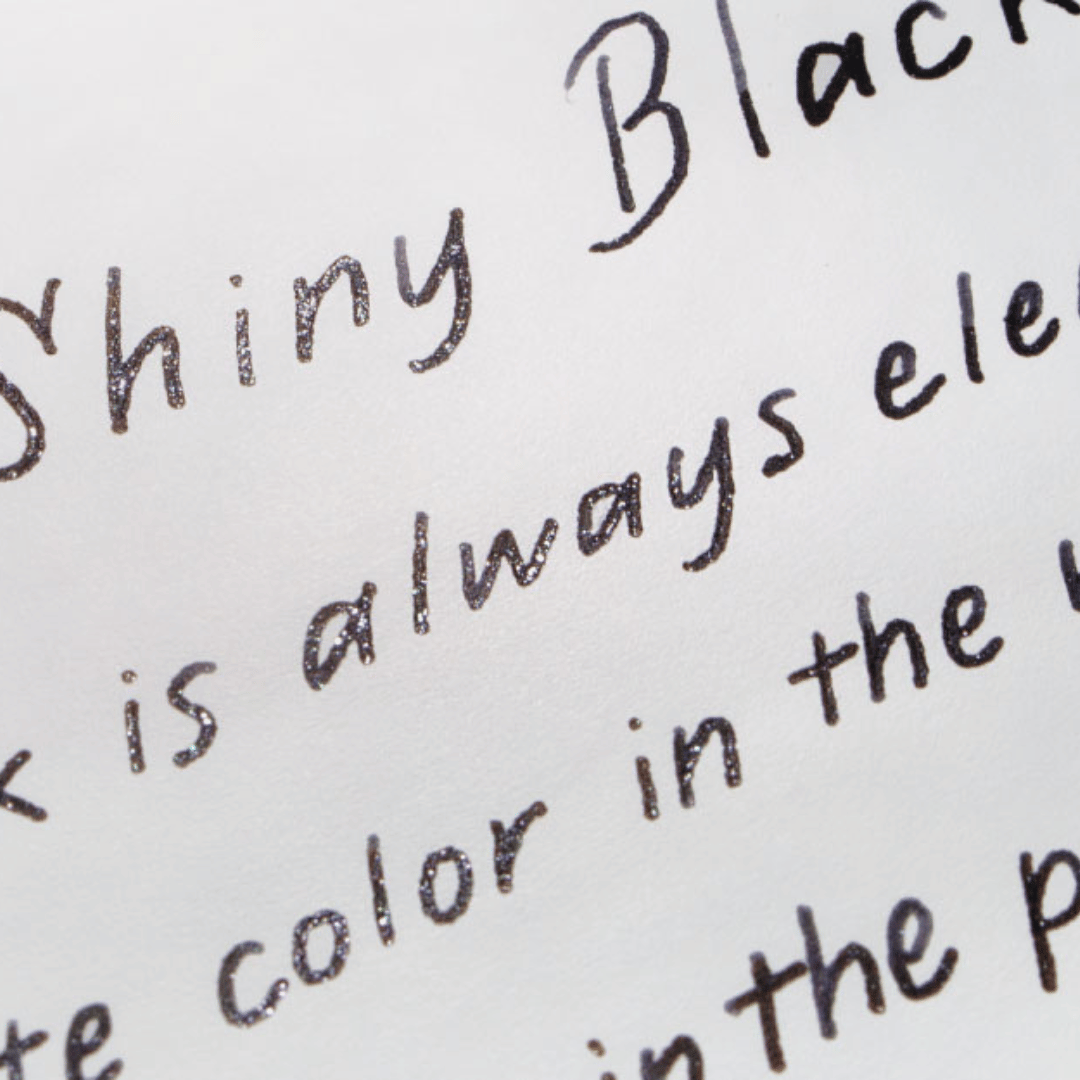 Shiny Black
is always
color in the
in the